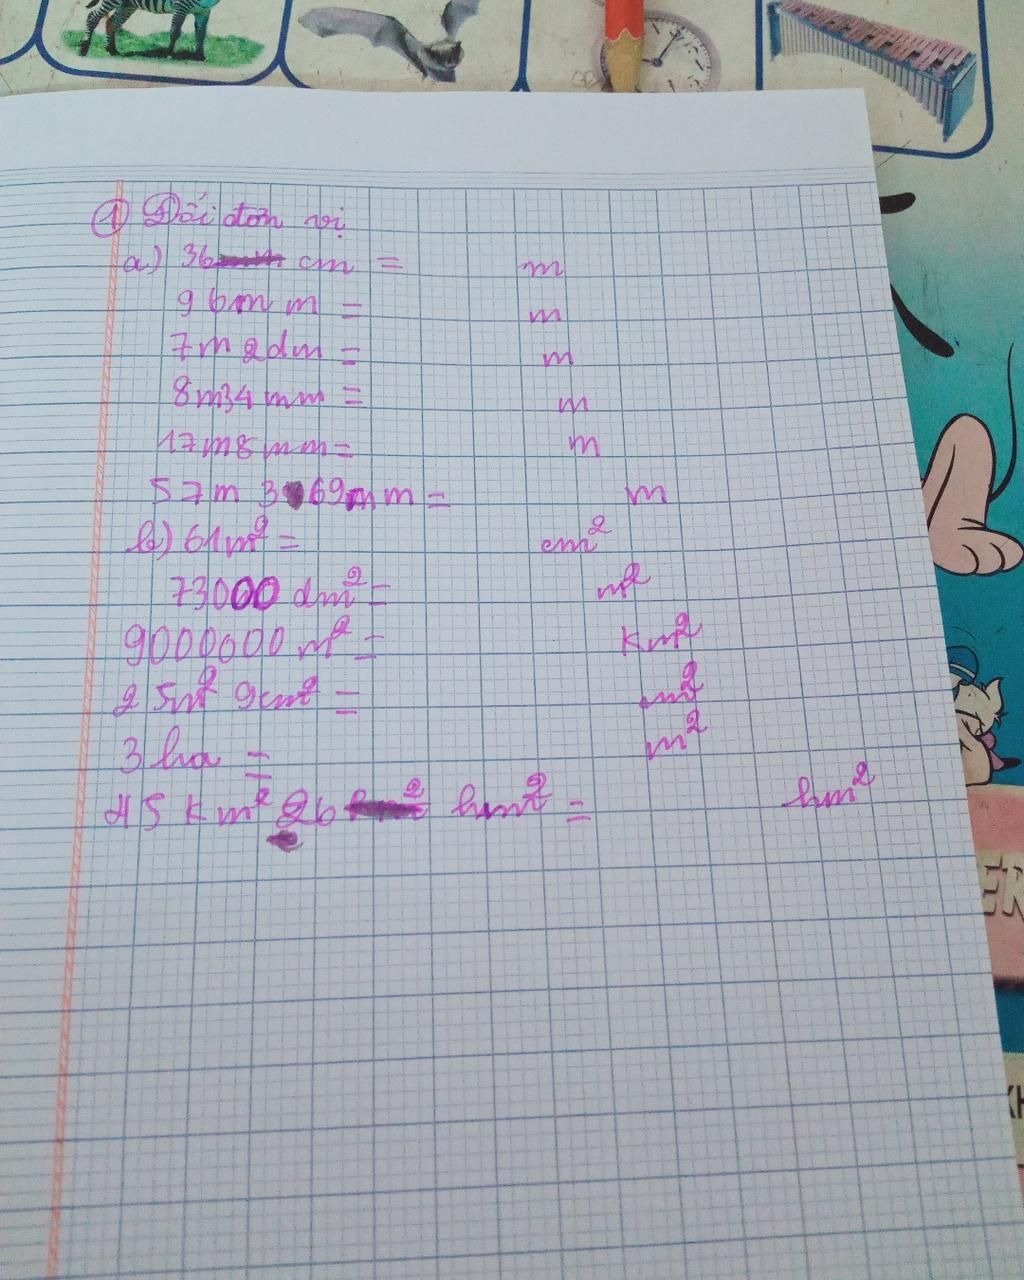 ① Đổi đơn vị
a) 36 cm = m
96mm = m
7m 2dm = m
8m34mm = m
17m8mm = m
57m 369mm = m
b) 61m² = cm²
73000 dm² = m²
9000000 m² = Km²
25m² 9cm² = m²
3 ha = m²
45 Km² 26 hm² = hm²
ER
KH